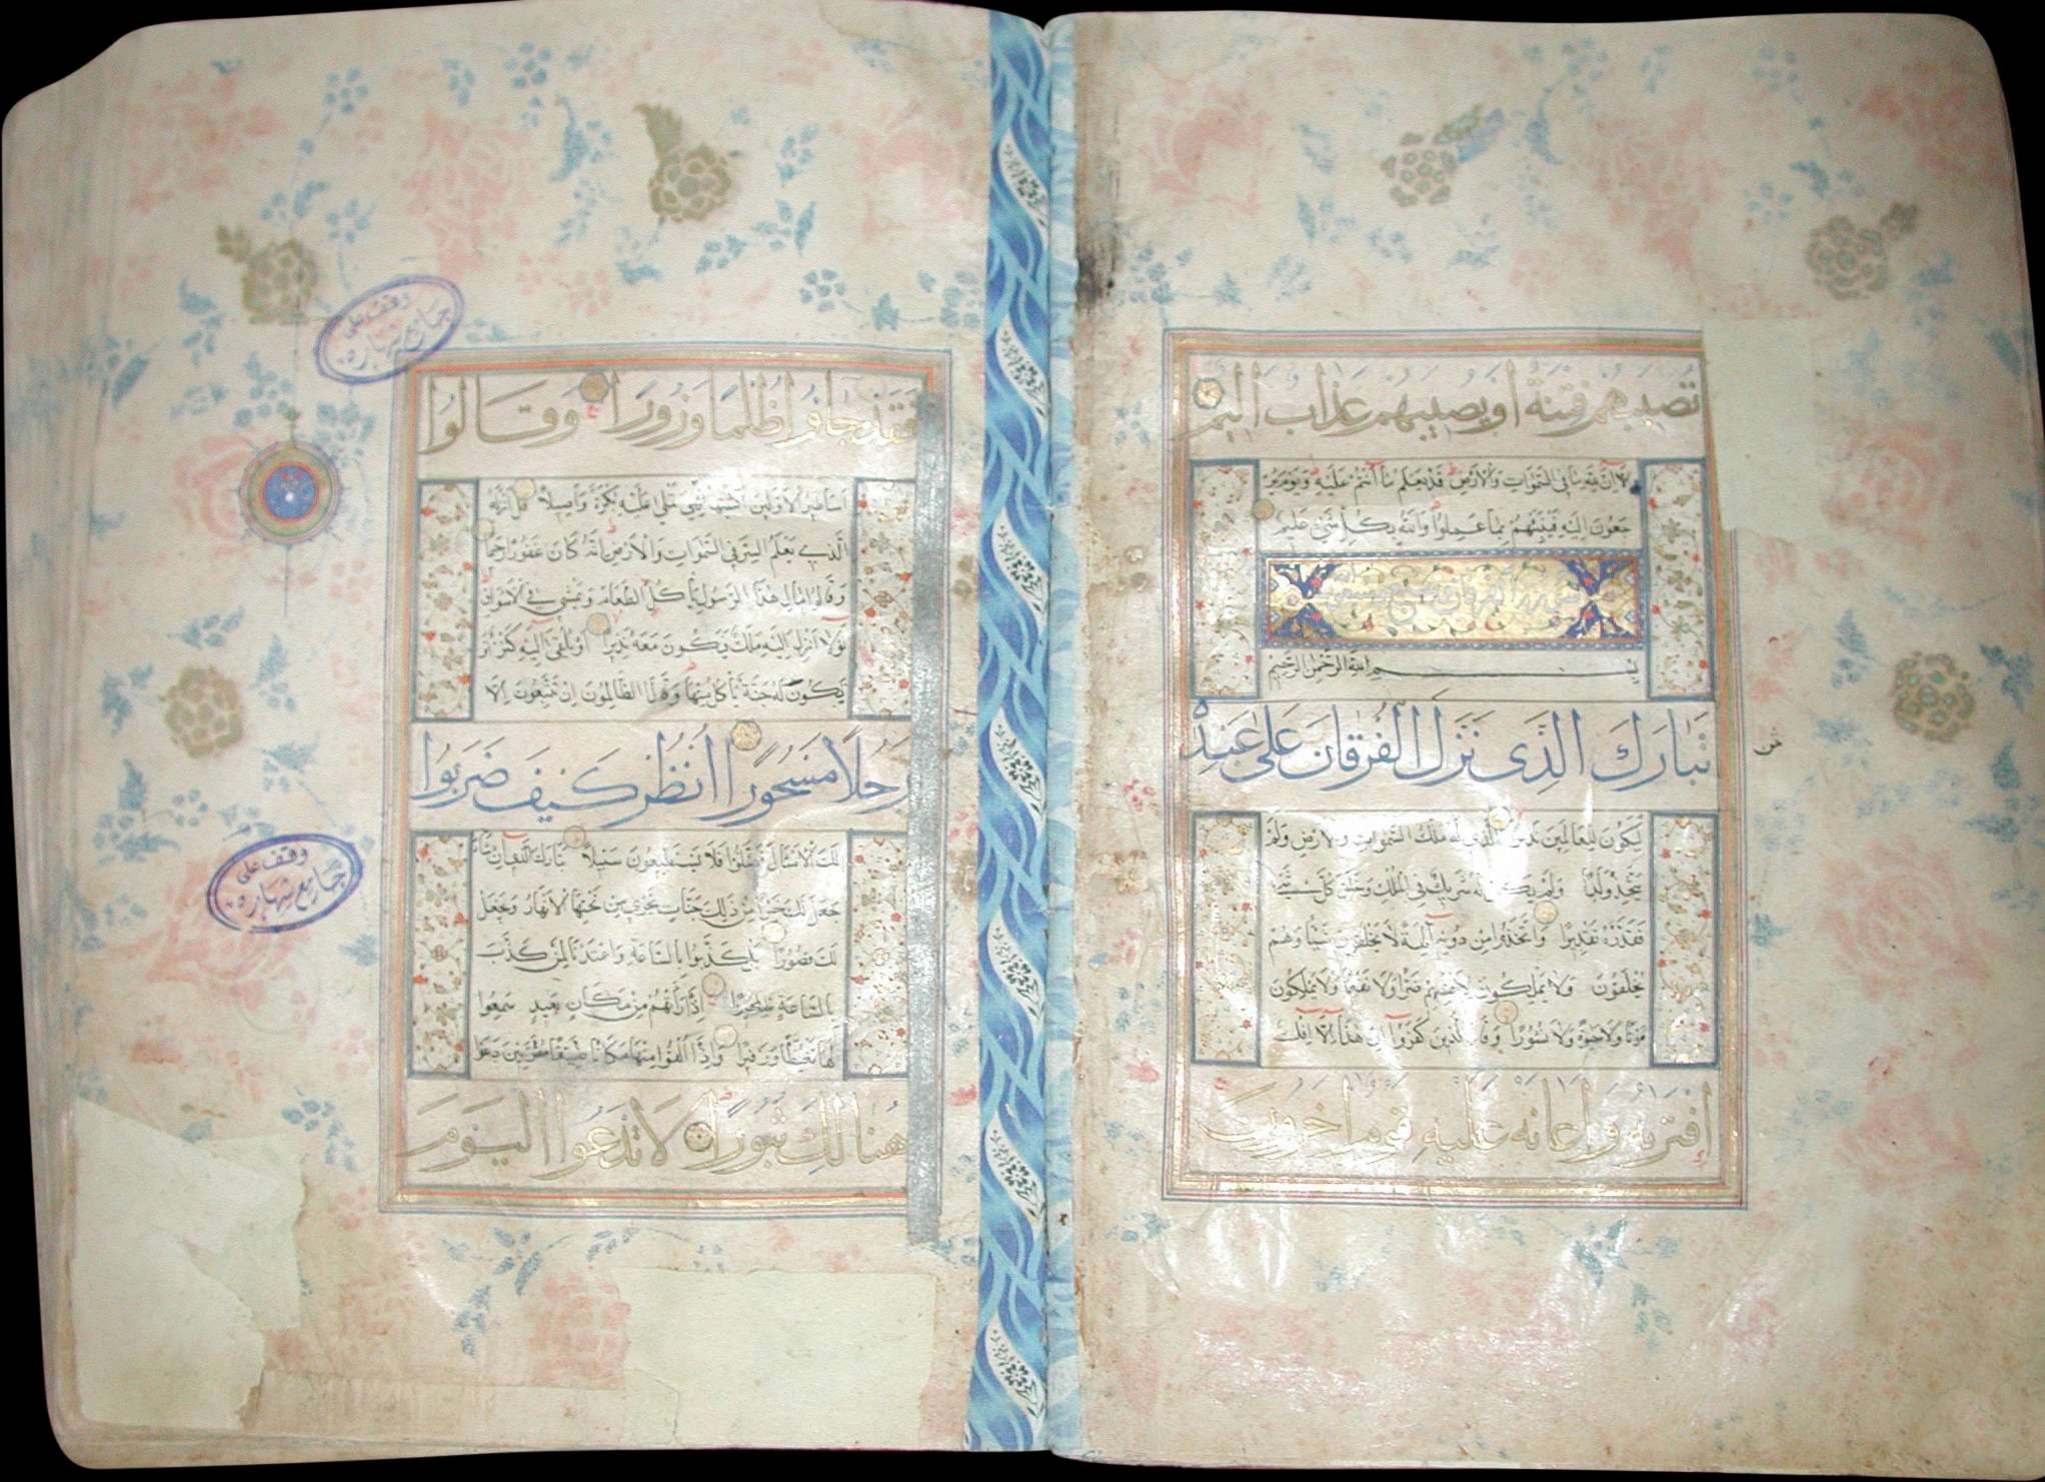 تُصِيبَهُمْ فِتْنَةٌ أَوْ يُصِيبَهُمْ عَذَابٌ أَلِيمٌ
أَلَا إِنَّ لِلَّهِ مَا فِي السَّمَوَاتِ وَالْأَرْضِ قَدْ يَعْلَمُ مَا أَنْتُمْ عَلَيْهِ وَيَوْمَ يُرْ
جَعُونَ إِلَيْهِ فَيُنَبِّئُهُمْ بِمَا عَمِلُوا وَاللَّهُ بِكُلِّ شَيْءٍ عَلِيمٌ
سورة الفرقان سبع وسبعون
بسم الله الرحمن الرحيم
تَبَارَكَ الَّذِي نَزَّلَ الْفُرْقَانَ عَلَى عَبْدِهِ
لِيَكُونَ لِلْعَالَمِينَ نَذِيرًا الَّذِي لَهُ مُلْكُ السَّمَوَاتِ وَالْأَرْضِ وَلَمْ
يَتَّخِذْ وَلَدًا وَلَمْ يَكُنْ لَهُ شَرِيكٌ فِي الْمُلْكِ وَخَلَقَ كُلَّ شَيْءٍ
فَقَدَّرَهُ تَقْدِيرًا وَاتَّخَذُوا مِنْ دُونِهِ آلِهَةً لَا يَخْلُقُونَ شَيْئًا وَهُمْ
يُخْلَقُونَ وَلَا يَمْلِكُونَ لِأَنْفُسِهِمْ ضَرًّا وَلَا نَفْعًا وَلَا يَمْلِكُونَ
مَوْتًا وَلَا حَيَوةً وَلَا نُشُورًا وَقَالَ الَّذِينَ كَفَرُوا إِنْ هَذَا إِلَّا إِفْكٌ
افْتَرَيهُ وَأَعَانَهُ عَلَيْهِ قَوْمٌ آخَرُونَ
فَقَدْ جَاؤُا ظُلْمًا وَزُورًا وَقَالُوا
أَسَاطِيرُ الْأَوَّلِينَ اكْتَتَبَهَا فَهِيَ تُمْلَى عَلَيْهِ بُكْرَةً وَأَصِيلًا قُلْ أَنْزَلَهُ
الَّذِي يَعْلَمُ السِّرَّ فِي السَّمَوَاتِ وَالْأَرْضِ إِنَّهُ كَانَ غَفُورًا رَحِيمًا
وَقَالُوا مَالِ هَذَا الرَّسُولِ يَأْكُلُ الطَّعَامَ وَيَمْشِي فِي الْأَسْوَاقِ
لَوْلَا أُنْزِلَ إِلَيْهِ مَلَكٌ فَيَكُونَ مَعَهُ نَذِيرًا أَوْ يُلْقَى إِلَيْهِ كَنْزٌ أَوْ
تَكُونُ لَهُ جَنَّةٌ يَأْكُلُ مِنْهَا وَقَالَ الظَّالِمُونَ إِنْ تَتَّبِعُونَ إِلَّا
رَجُلًا مَسْحُورًا انْظُرْ كَيْفَ ضَرَبُوا
لَكَ الْأَمْثَالَ فَضَلُّوا فَلَا يَسْتَطِيعُونَ سَبِيلًا تَبَارَكَ الَّذِي إِنْ شَاءَ
جَعَلَ لَكَ خَيْرًا مِنْ ذَلِكَ جَنَّاتٍ تَجْرِي مِنْ تَحْتِهَا الْأَنْهَارُ وَيَجْعَلْ
لَكَ قُصُورًا بَلْ كَذَّبُوا بِالسَّاعَةِ وَأَعْتَدْنَا لِمَنْ كَذَّبَ
بِالسَّاعَةِ سَعِيرًا إِذَا رَأَتْهُمْ مِنْ مَكَانٍ بَعِيدٍ سَمِعُوا
لَهَا تَغَيُّظًا وَزَفِيرًا وَإِذَا أُلْقُوا مِنْهَا مَكَانًا ضَيِّقًا مُقَرَّنِينَ دَعَوْا
هُنَالِكَ ثُبُورًا لَا تَدْعُوا الْيَوْمَ
وقف على
جامع شهارة
وقف على
جامع شهارة